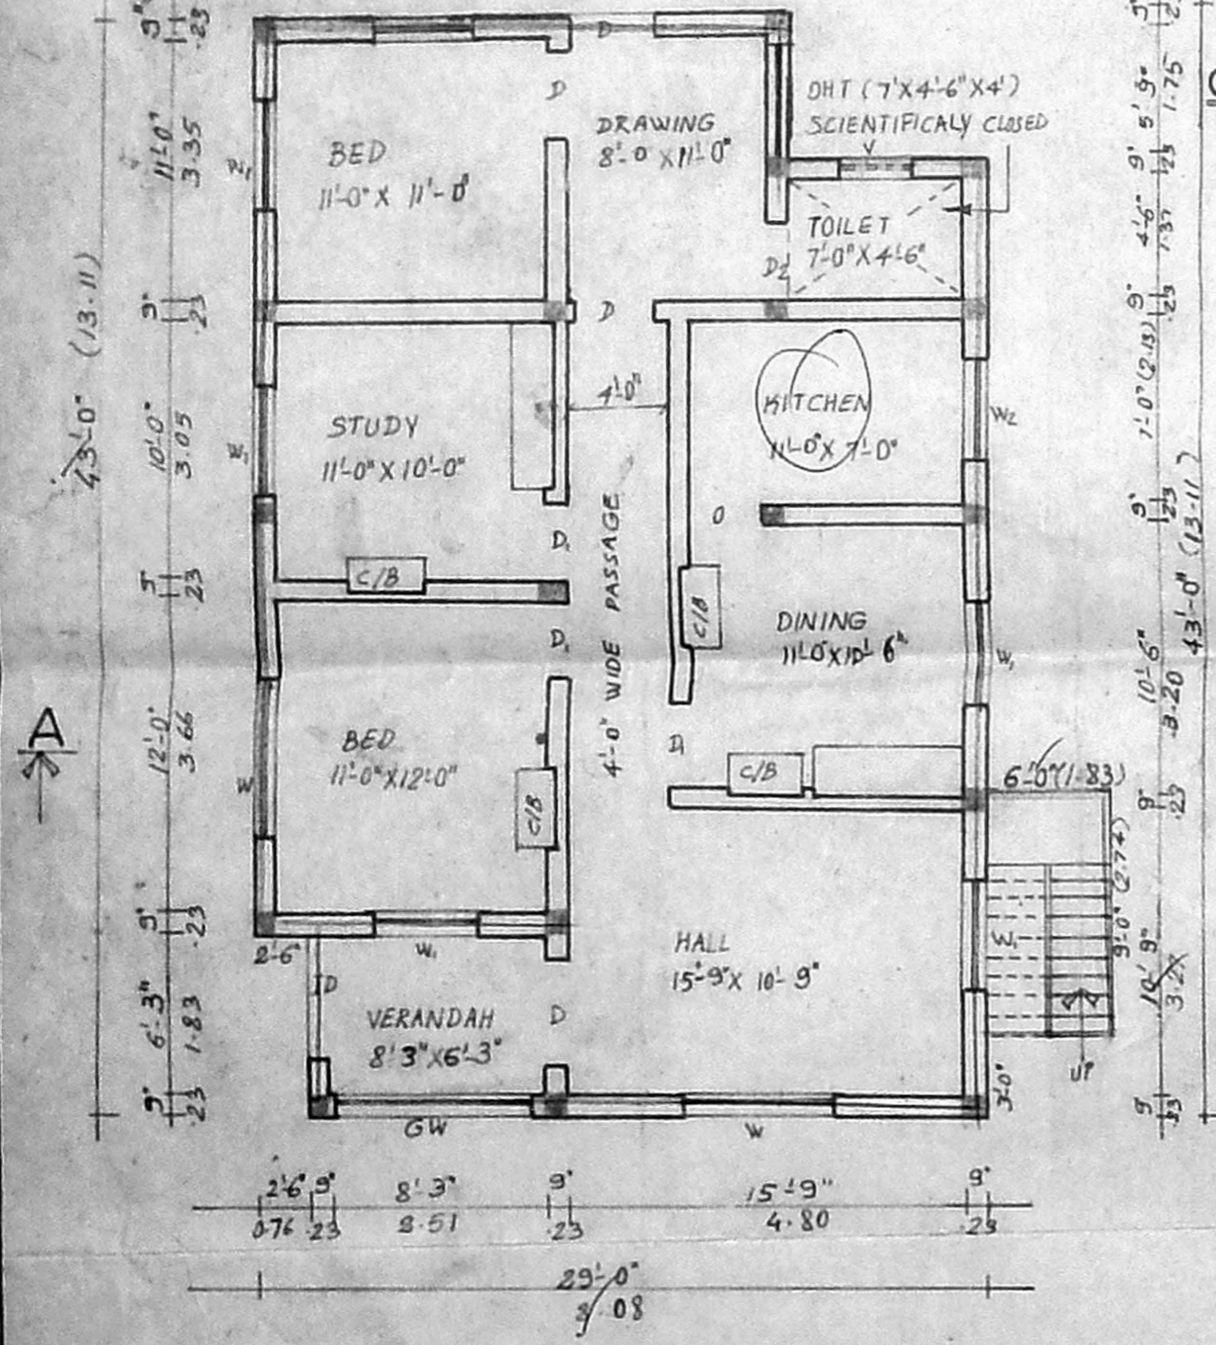 D
D
OHT (7'X4'-6"X4')
SCIENTIFICALY CLOSED
V
BED
11'-0" X 11'-0"
DRAWING
8'-0" X 11'-0"
TOILET
7'-0" X 4'-6"
D2
D
STUDY
11'-0" X 10'-0"
4'-0"
KITCHEN
11'-0" X 7'-0"
W2
W1
D1
O
C/B
C/B
4'-0" WIDE PASSAGE
DINING
11'-0" X 10'-6"
W1
D1
BED
11'-0" X 12'-0"
W
C/B
D1
C/B
6'-0" (1.83)
9'-0" (2.74)
HALL
15'-9" X 10'-9"
W1
UP
3'-0"
2'-6"
W1
D
VERANDAH
8'3" X 6'-3"
D
GW
W
A
43'-0" (13.11)
9" .23
11'-0" 3.35
9" .23
10'-0" 3.05
9" .23
12'-0" 3.66
9" .23
6'-3" 1.83
9" .23
5'9" 1.75
9" .23
4'-6" 1.37
9" .23
7'-0" (2.13)
9" .23
10'-6" 3.20
9" .23
10'-9"
9" .23
43'-0" (13.11)
2'-6" 9" 8'-3" 9" 15'-9" 9"
0.76 .23 2.51 .23 4.80 .23
29'-0"